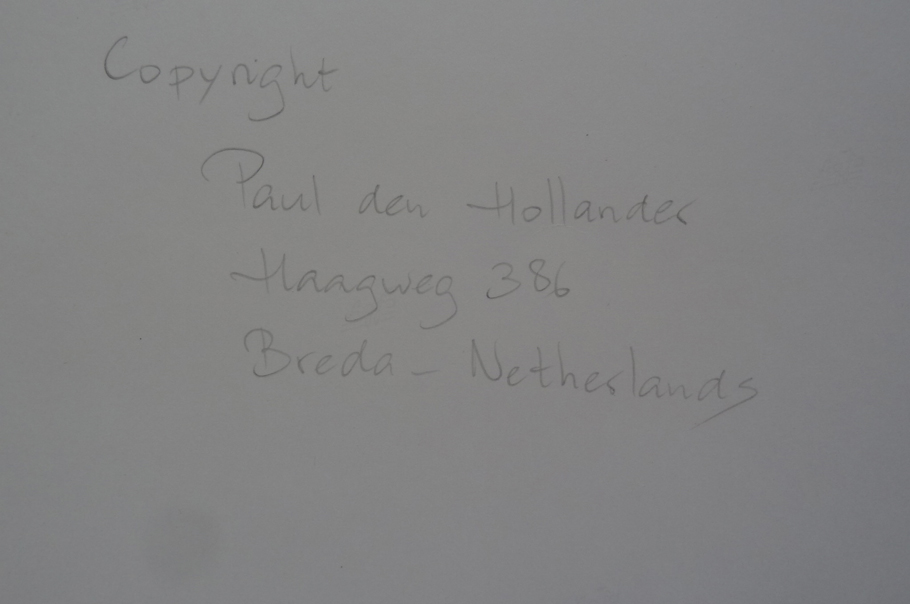 Copyright
Paul den Hollander
Haagweg 386
Breda - Netherlands